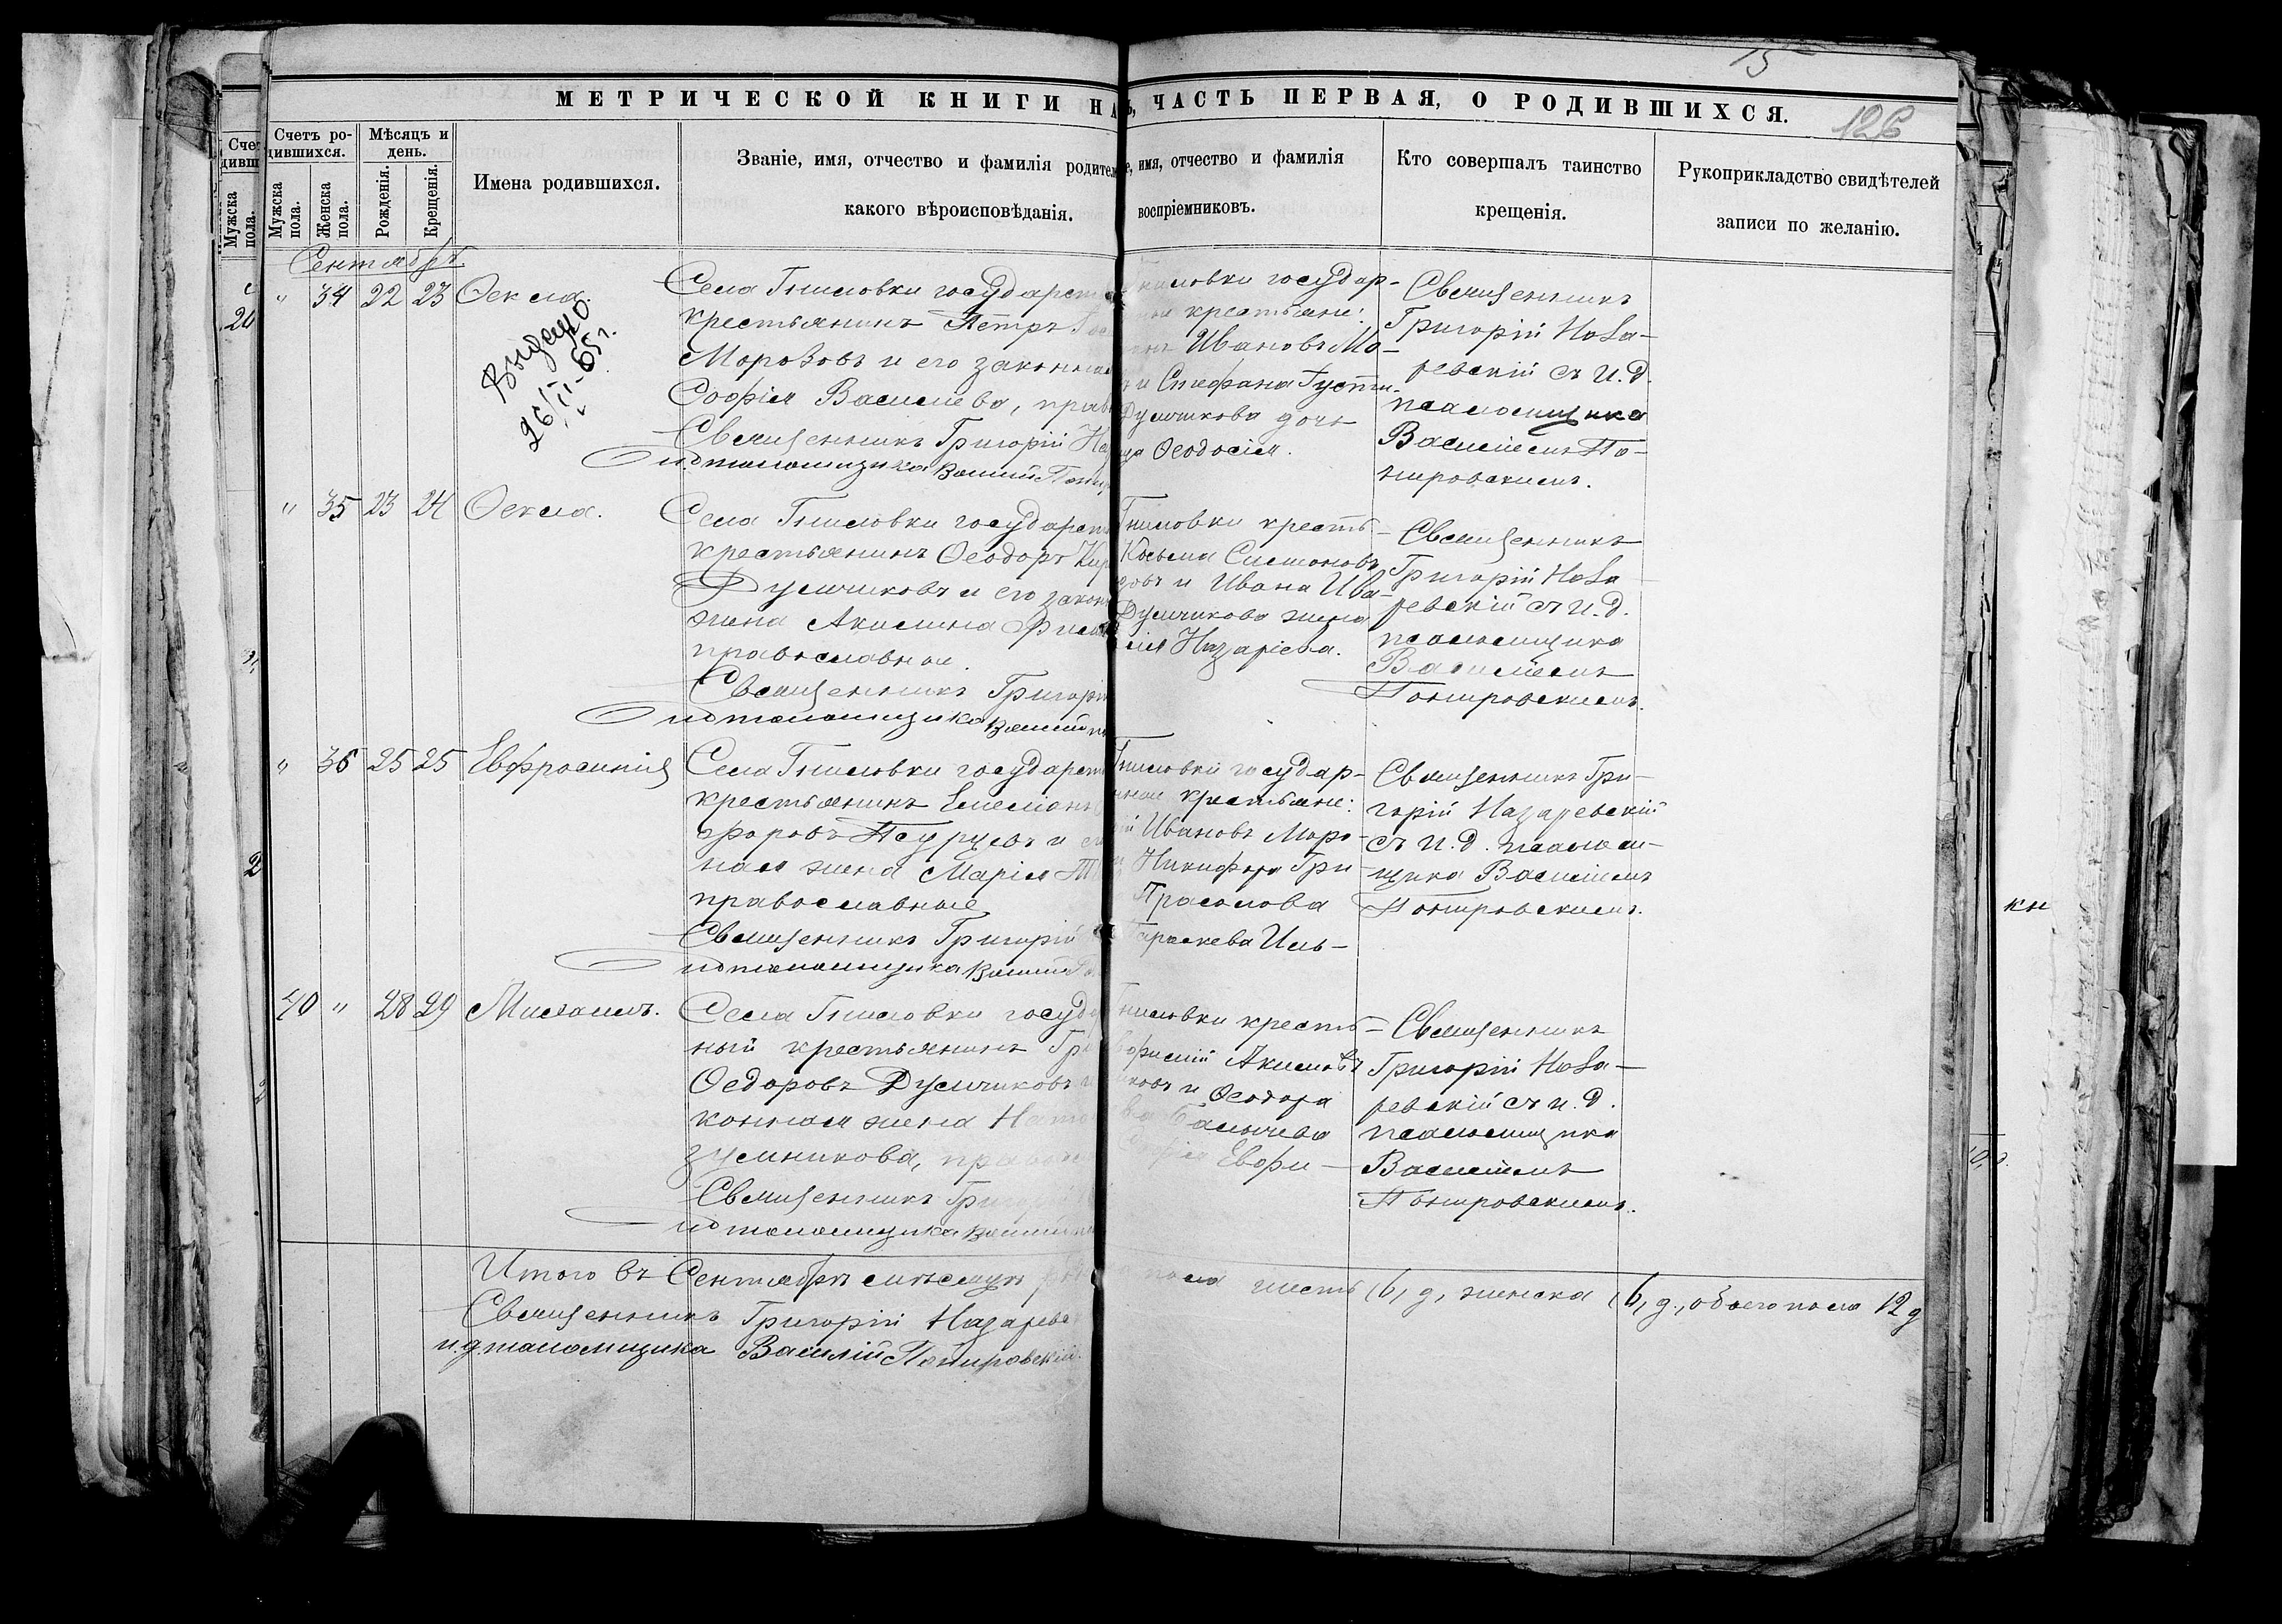 15
МЕТРИЧЕСКОЙ КНИГИ НА
Ь, ЧАСТЬ ПЕРВАЯ, О РОДИВШИХСЯ.
126
Счетъ ро-
дившихся.
Мужска
пола.
Женска
пола.
Мѣсяцъ и
день.
Рожденія.
Крещенія.
Имена родившихся.
Званіе, имя, отчество и фамилія родител
какого вѣроисповѣданія.
е, имя, отчество и фамилія
воспріемниковъ.
Кто совершалъ таинство
крещенія.
Рукоприкладство свидѣтелей
записи по желанію.
Сентябрь
" 34 22 23 Ѳекла.
Выдано
26/II-65г.
Села Гниловки государст
крестьянинъ Петръ
Морозовъ и его законная
Софія Василева, прав
Священникъ Григорій На
псаломщика Василій Пони
ниловки государ-
ные крестьяне:
Ивановъ Мо-
и Стефана Густи-
Думчикова дочь
ца Ѳеодосія.
Священникъ
Григорій Наза-
ревскій съ и.д.
псаломщика
Василіемъ По-
нировскимъ.
" 35 23 24 Ѳекла.
Села Гниловки государст
крестьянинъ Ѳеодоръ Кир
Думчиковъ и его закон
жена Акилина Фили
православные.
Священникъ Григорій
псаломщика Василій По
Гниловки кресть-
Козьма Симоновъ
ровъ и Ивана Ива-
Думчикова жена
Назаріева.
Священникъ
Григорій Наза-
ревскій съ и.д.
псаломщика
Василіемъ
Понировскимъ.
" 36 25 25 Евфросинія
Села Гниловки государст
крестьянинъ Емеліанъ
форовъ Псурцевъ и е
ная жена Марія
православные
Священникъ Григорій
псаломщика Василій
Гниловки государ-
нные крестьяне:
Ивановъ Моро-
Никифора Гри
Прасолова
Параскева Иль-
Священникъ Гри-
горій Назаревскій
съ и.д. псалом-
щика Василіемъ
Понировскимъ.
40 " 28 29 Михаилъ.
Села Гниловки госуда
ный крестьянинъ Гри
Ѳедоровъ Думчиковъ и
конная жена Ната
зумникова, правос
Священникъ Григорій
псаломщика Василій По
ниловки кресть-
Акимовъ
ковъ и Ѳеодора
ва
Евфи-
Священникъ
Григорій Наза-
ревскій съ и.д.
псаломщика
Василіемъ
Понировскимъ.
Итого въ Сентябрѣ мѣсяцѣ ро
пола шесть (6) д, женска (6) д., обоего пола 12 д
Священникъ Григорій Назаревс
и.д. псаломщика Василій Понировскій.